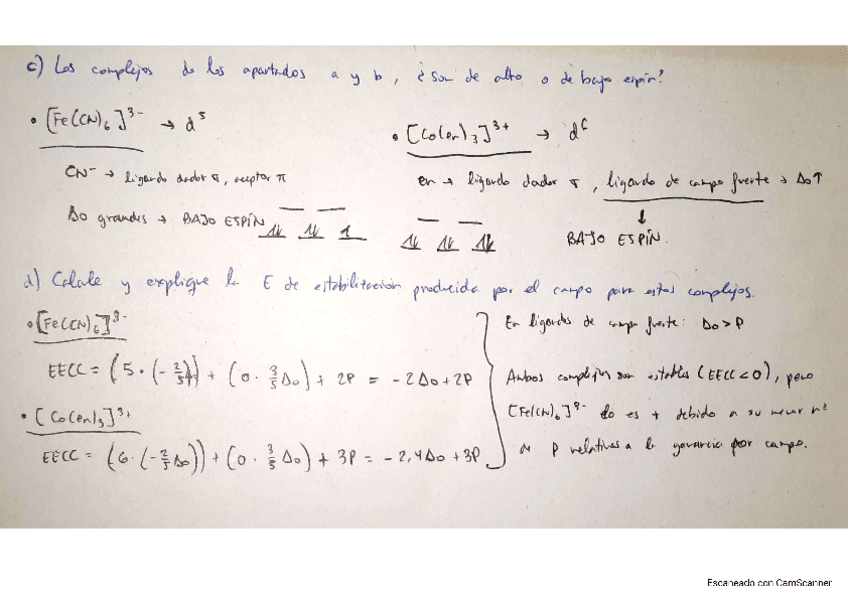 c) Los complejos de los apartados a y b, ¿son de alto o de bajo espín?
• [Fe(CN)6]3- → d5
CN- → ligando dador σ, aceptor π
Δo grandes → BAJO ESPÍN
• [Co(en)3]3+ → d6
en → ligando dador σ, ligando de campo fuerte → Δo↑
↓
BAJO ESPÍN.
d) Calcule y explique la E de estabilitación producida por el campo para estos complejos.
• [Fe(CN)6]3-
EECC = (5 · (-2/5)) + (0 · 3/5 Δo) + 2P = -2Δo + 2P
• [Co(en)3]3+
EECC = (6 · (-2/5 Δo)) + (0 · 3/5 Δo) + 3P = -2,4Δo + 3P
En ligandos de campo fuerte: Δo > P
Ambos complejos son estables (EECC < 0), pero
[Fe(CN)6]3- lo es + debido a su menor nº
de P relativas a la ganancia por campo.
Escaneado con CamScanner